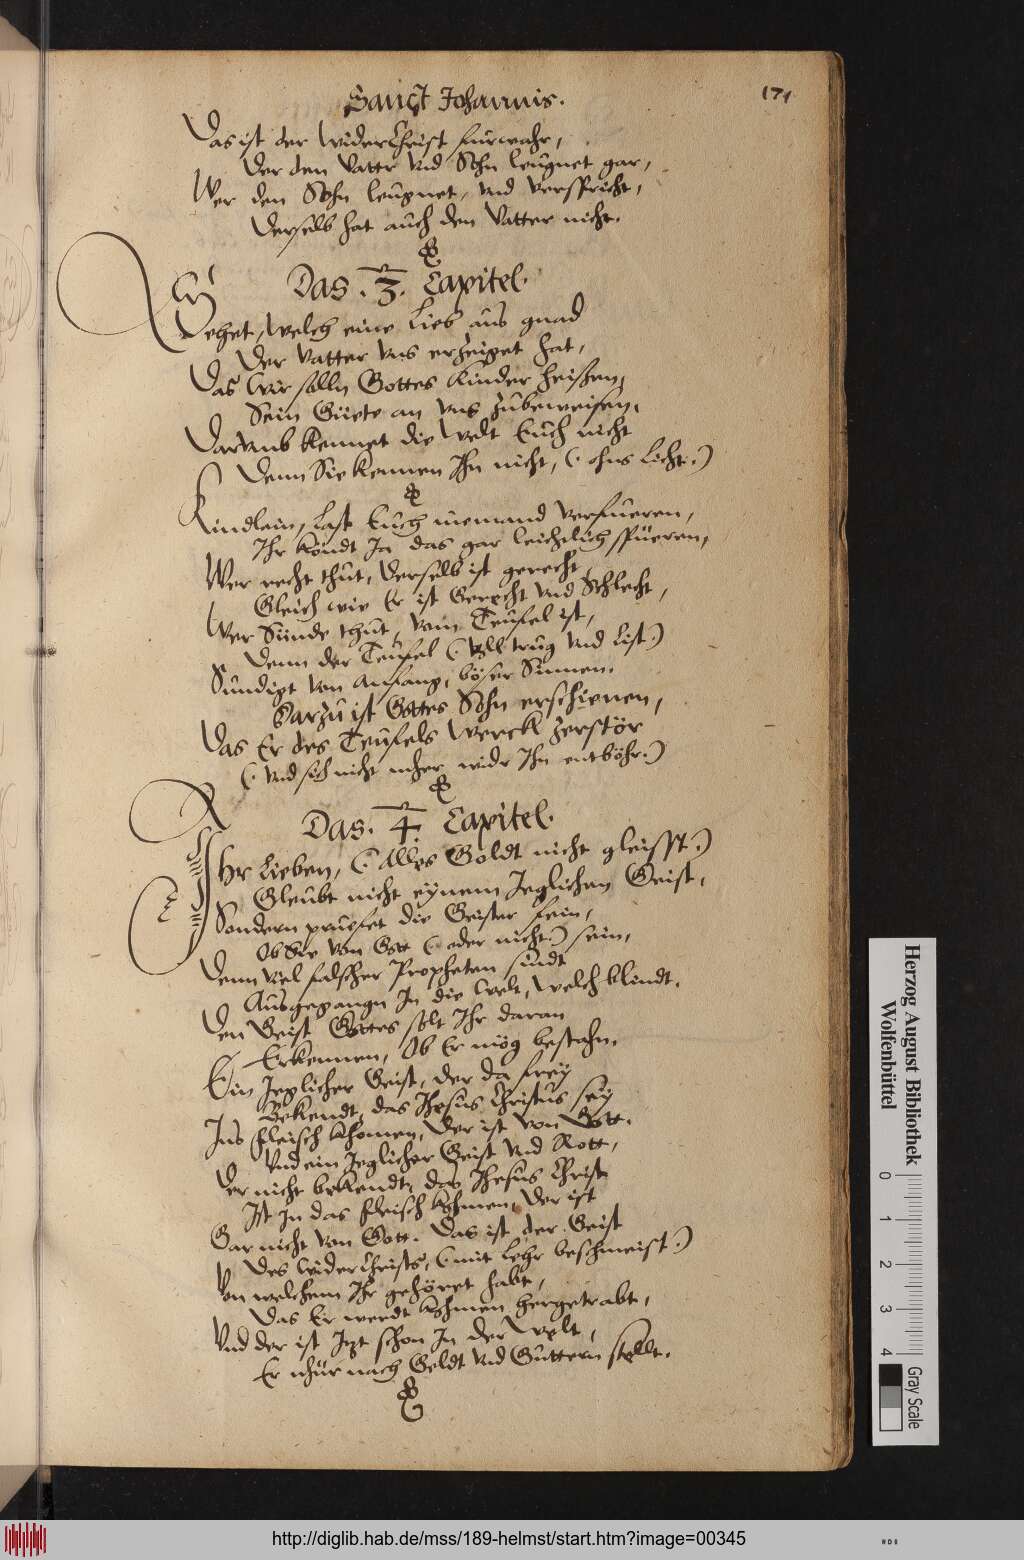 Sanct Johannis.
171
Das ist der widerChrist fürwahr,
Der den Vattr vnd Sohn leugnet gar,
Wer den Sohn leugnet, vnd verspricht,
Derselb hat auch den Vatter nicht.
Das .3. Capitel.
Sehet, welch eine Lieb aus gnad
Der Vatter vns erzeiget hat,
Das wir solln Gottes Kinder heißen,
Sein Güete an vns zubeweisen,
Darumb kennet die Welt Euch nicht
Denn Sie kennen Ihn nicht, (: ohns Licht:)
Kindlein, Last Euch niemand verfueren,
Ihr köndt Ja das gar leichtlich spüeren,
Wer recht thut, derselb ist gerecht
Gleich wie Er ist Gerecht vnd Schlecht,
Wer Sünde thut, vom Teufel ist,
Denn der Teufel (: voll trug vnd List:)
Sündigt von Anfang, böser Sinnen.
Darzu ist Gottes Sohn erschienen,
Das Er des Teufels Werck zerstör
(: vnd sich nicht meher widr Ihn entböhr:)
Das. 4. Capitel.
Ihr Lieben, (: Alles Goldt nicht gleisst:)
Gleubt nicht eynem Jeglichen Geist,
Sondern pruefet die Geister fein,
Ob Sie von Gott (: oder nicht:) sein,
Denn viel falscher Propheten sindt
Ausgegangn In die Welt, welch blindt.
Den Geist Gottes solt Ihr daran
Erkennen, Ob Er mög bestahn.
Ein Jeglicher Geist, der da frey
Bekendt, das Jhesus Christus sey
Ins fleisch khomen, der ist von Gott.
Vnd ein Jeglicher Geist vnd Rott,
Der nicht bekendt, das Jhesus Christ
Ist In das fleisch khomen, der ist
Gar nicht von Gott. Das ist der Geist
Des widerChrists, (: mit Lehr beschmeist:)
Von welchem Ihr gehöret habt,
Das Er werdt khomen hergetrabt,
Vnd der ist Jtzt schon In der Welt,
Er nhür nach Geldt vnd Güttern stellt.
Herzog August Bibliothek
Wolfenbüttel
0 1 2 3 4
Gray Scale
http://diglib.hab.de/mss/189-helmst/start.htm?image=00345